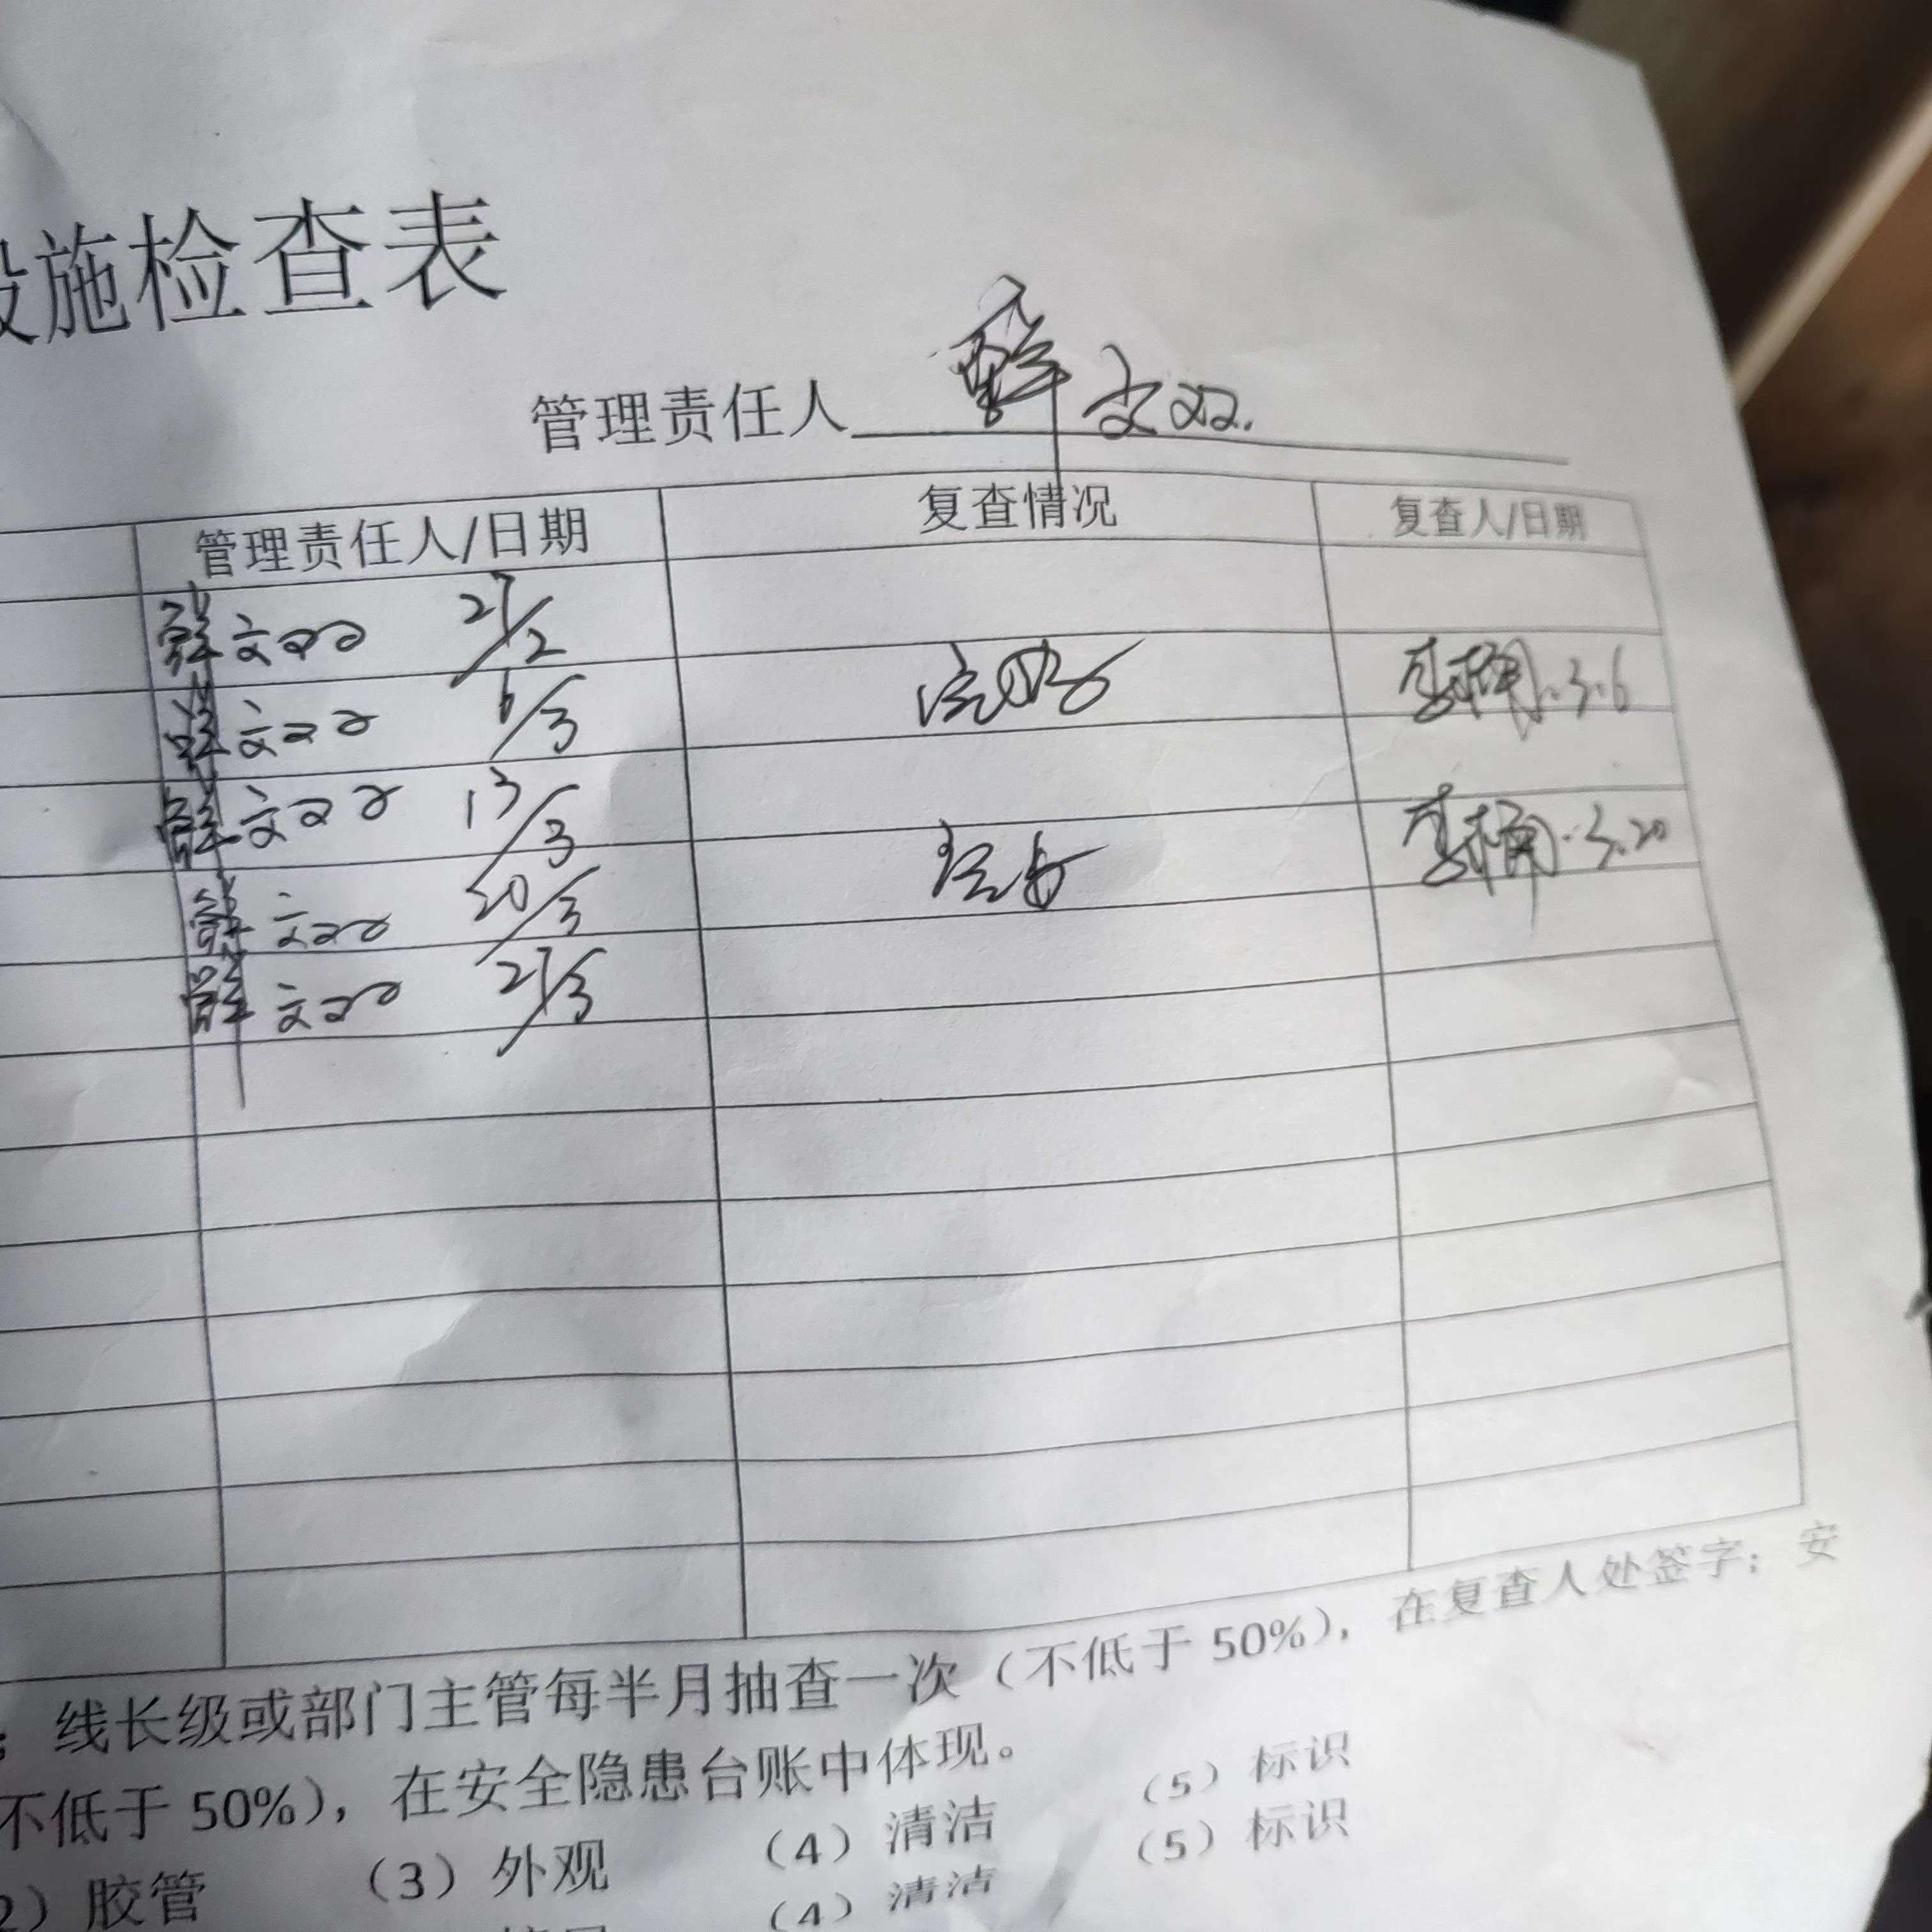 设施检查表
管理责任人 解文双.
管理责任人/日期 复查情况 复查人/日期
解文双 27/2
解文双 6/3 完好 3.6
解文双 13/3
解文双 20/3 完好 3.20
解文双 27/3
; 线长级或部门主管每半月抽查一次（不低于 50%），在复查人处签字；安
不低于 50%），在安全隐患台账中体现。
2）胶管 （3）外观 （4）清洁 （5）标识
（4）清洁 （5）标识